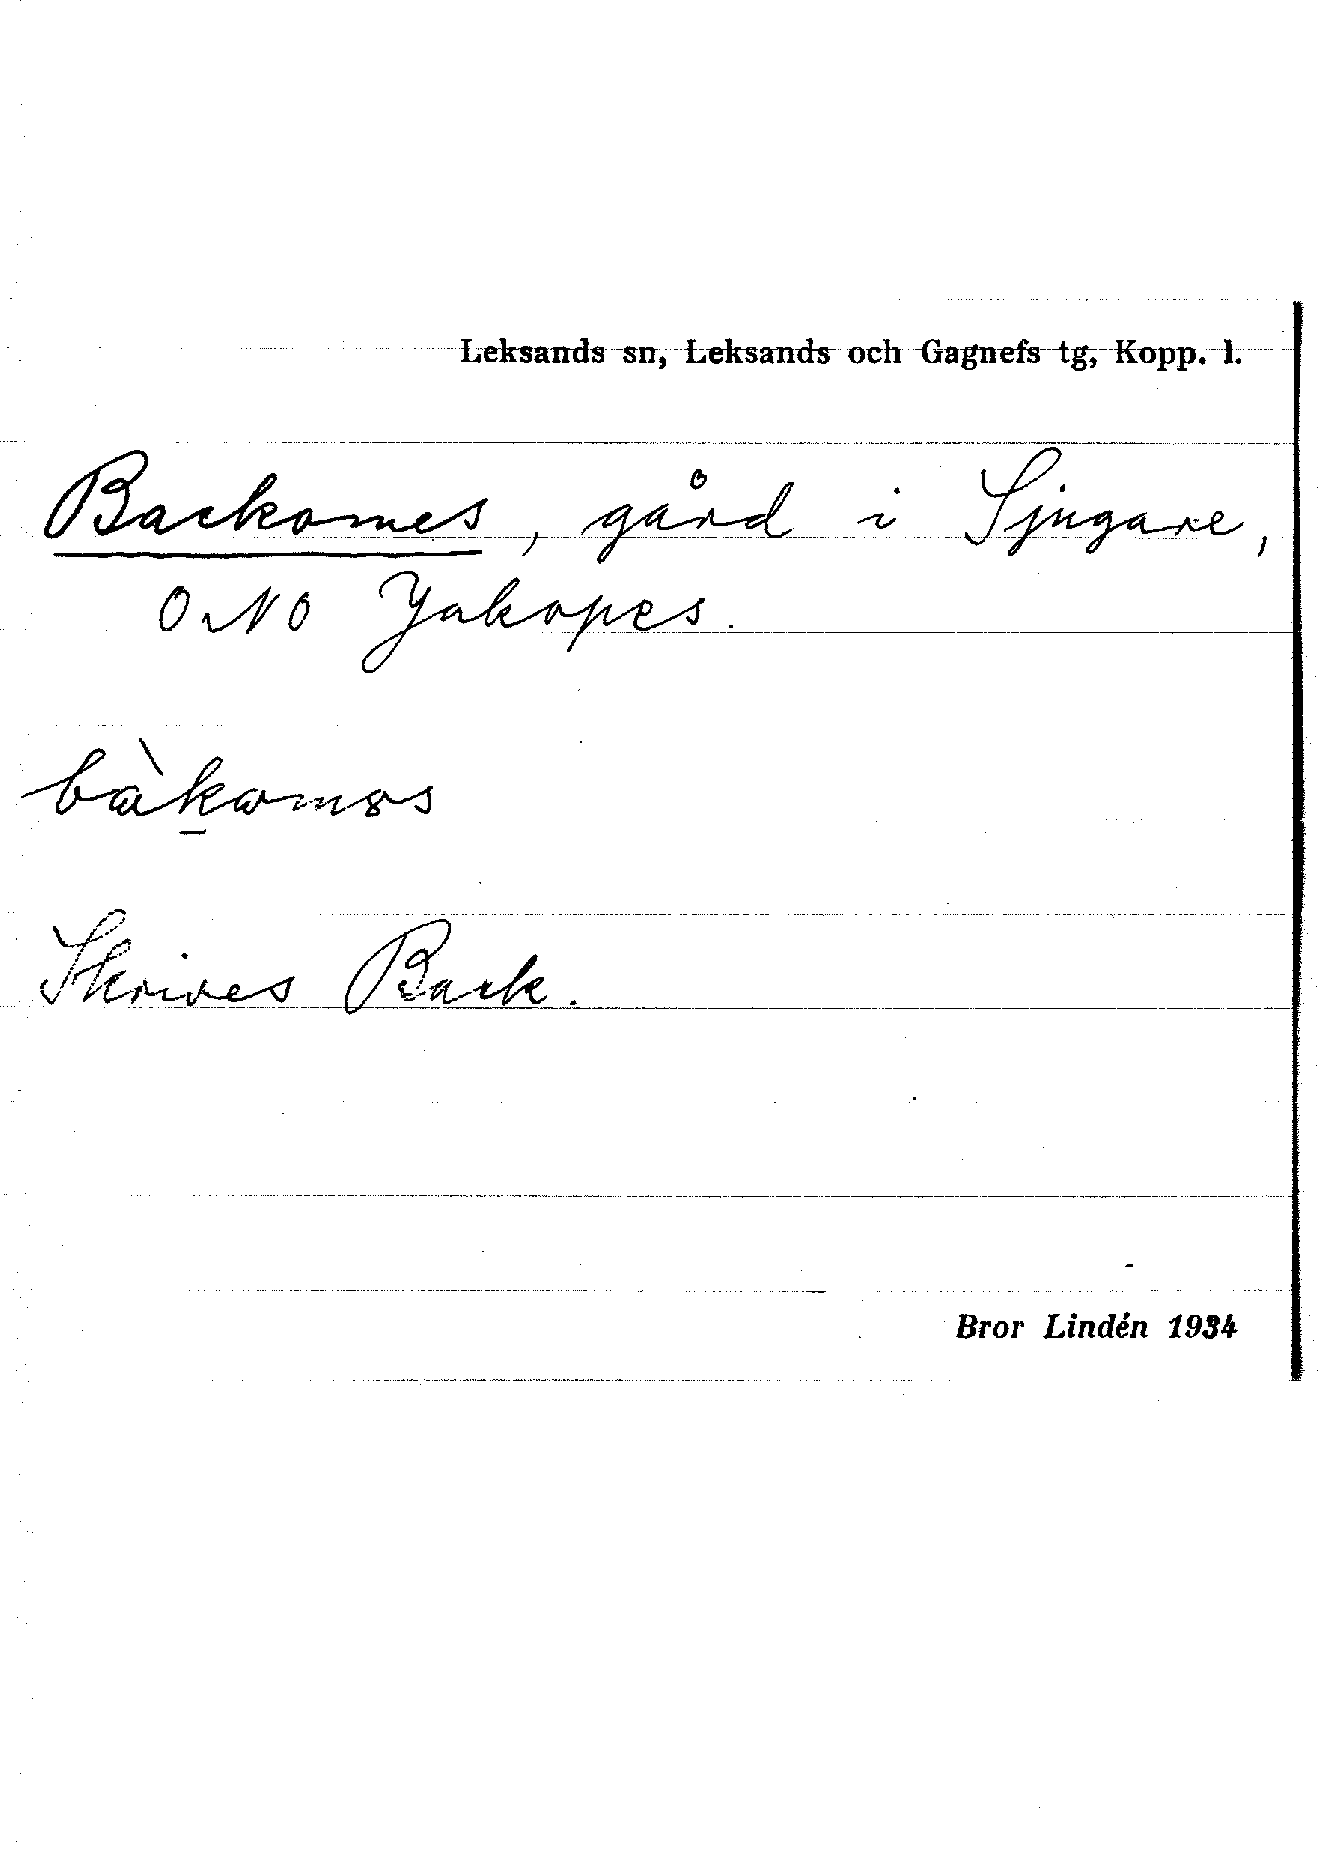 Leksands sn, Leksands och Gagnefs tg, Kopp. l.
Backomes, gård i Sjugare,
O NO Jakopes.
bàk̲omǝs
Skrives Back.
Bror Lindén 1934